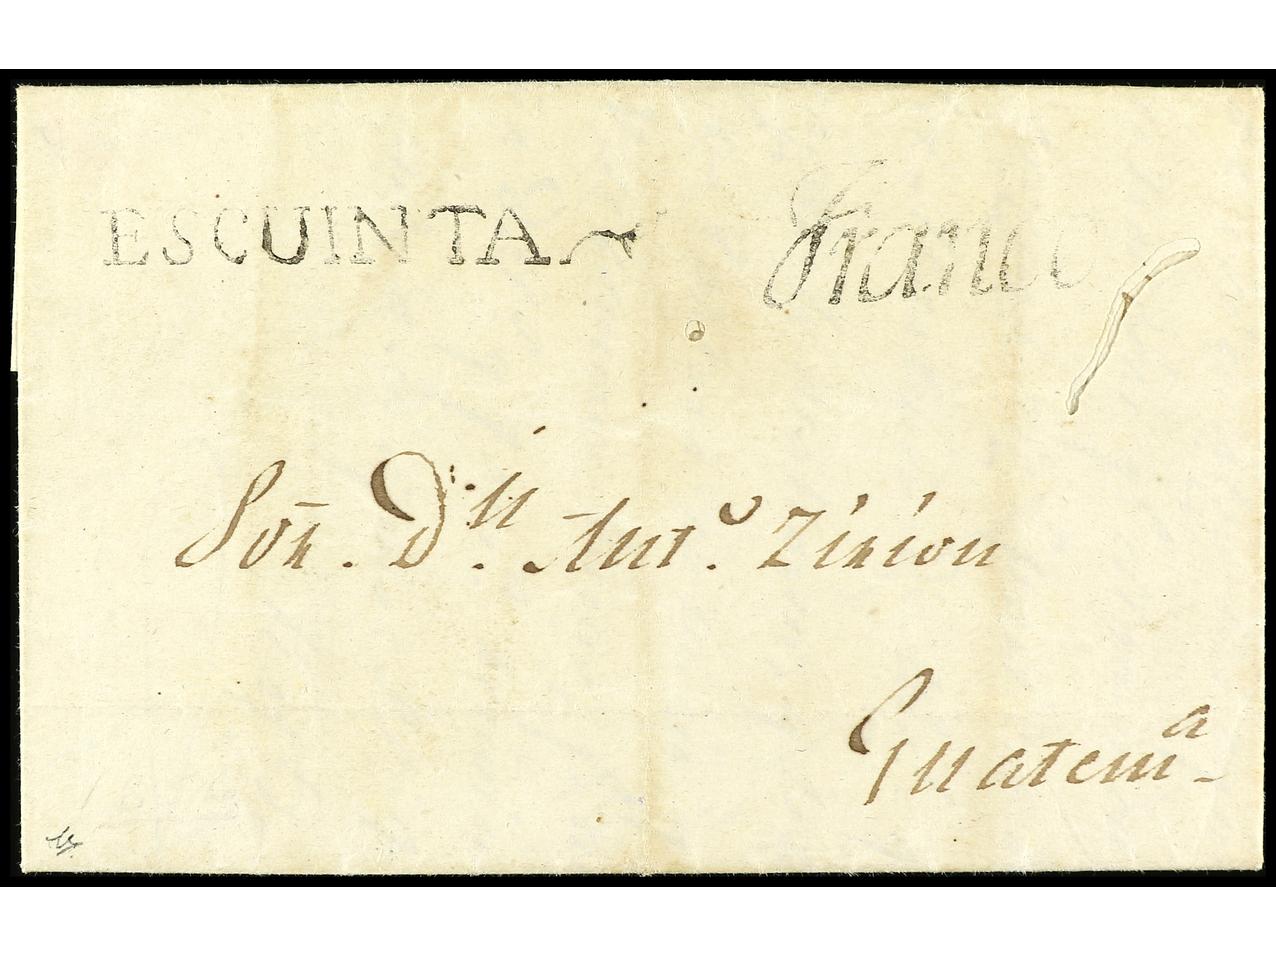 ESCUINTA Franco
Sōr. Dⁿ. Antᵒ. Zirion
Guatemᵃ